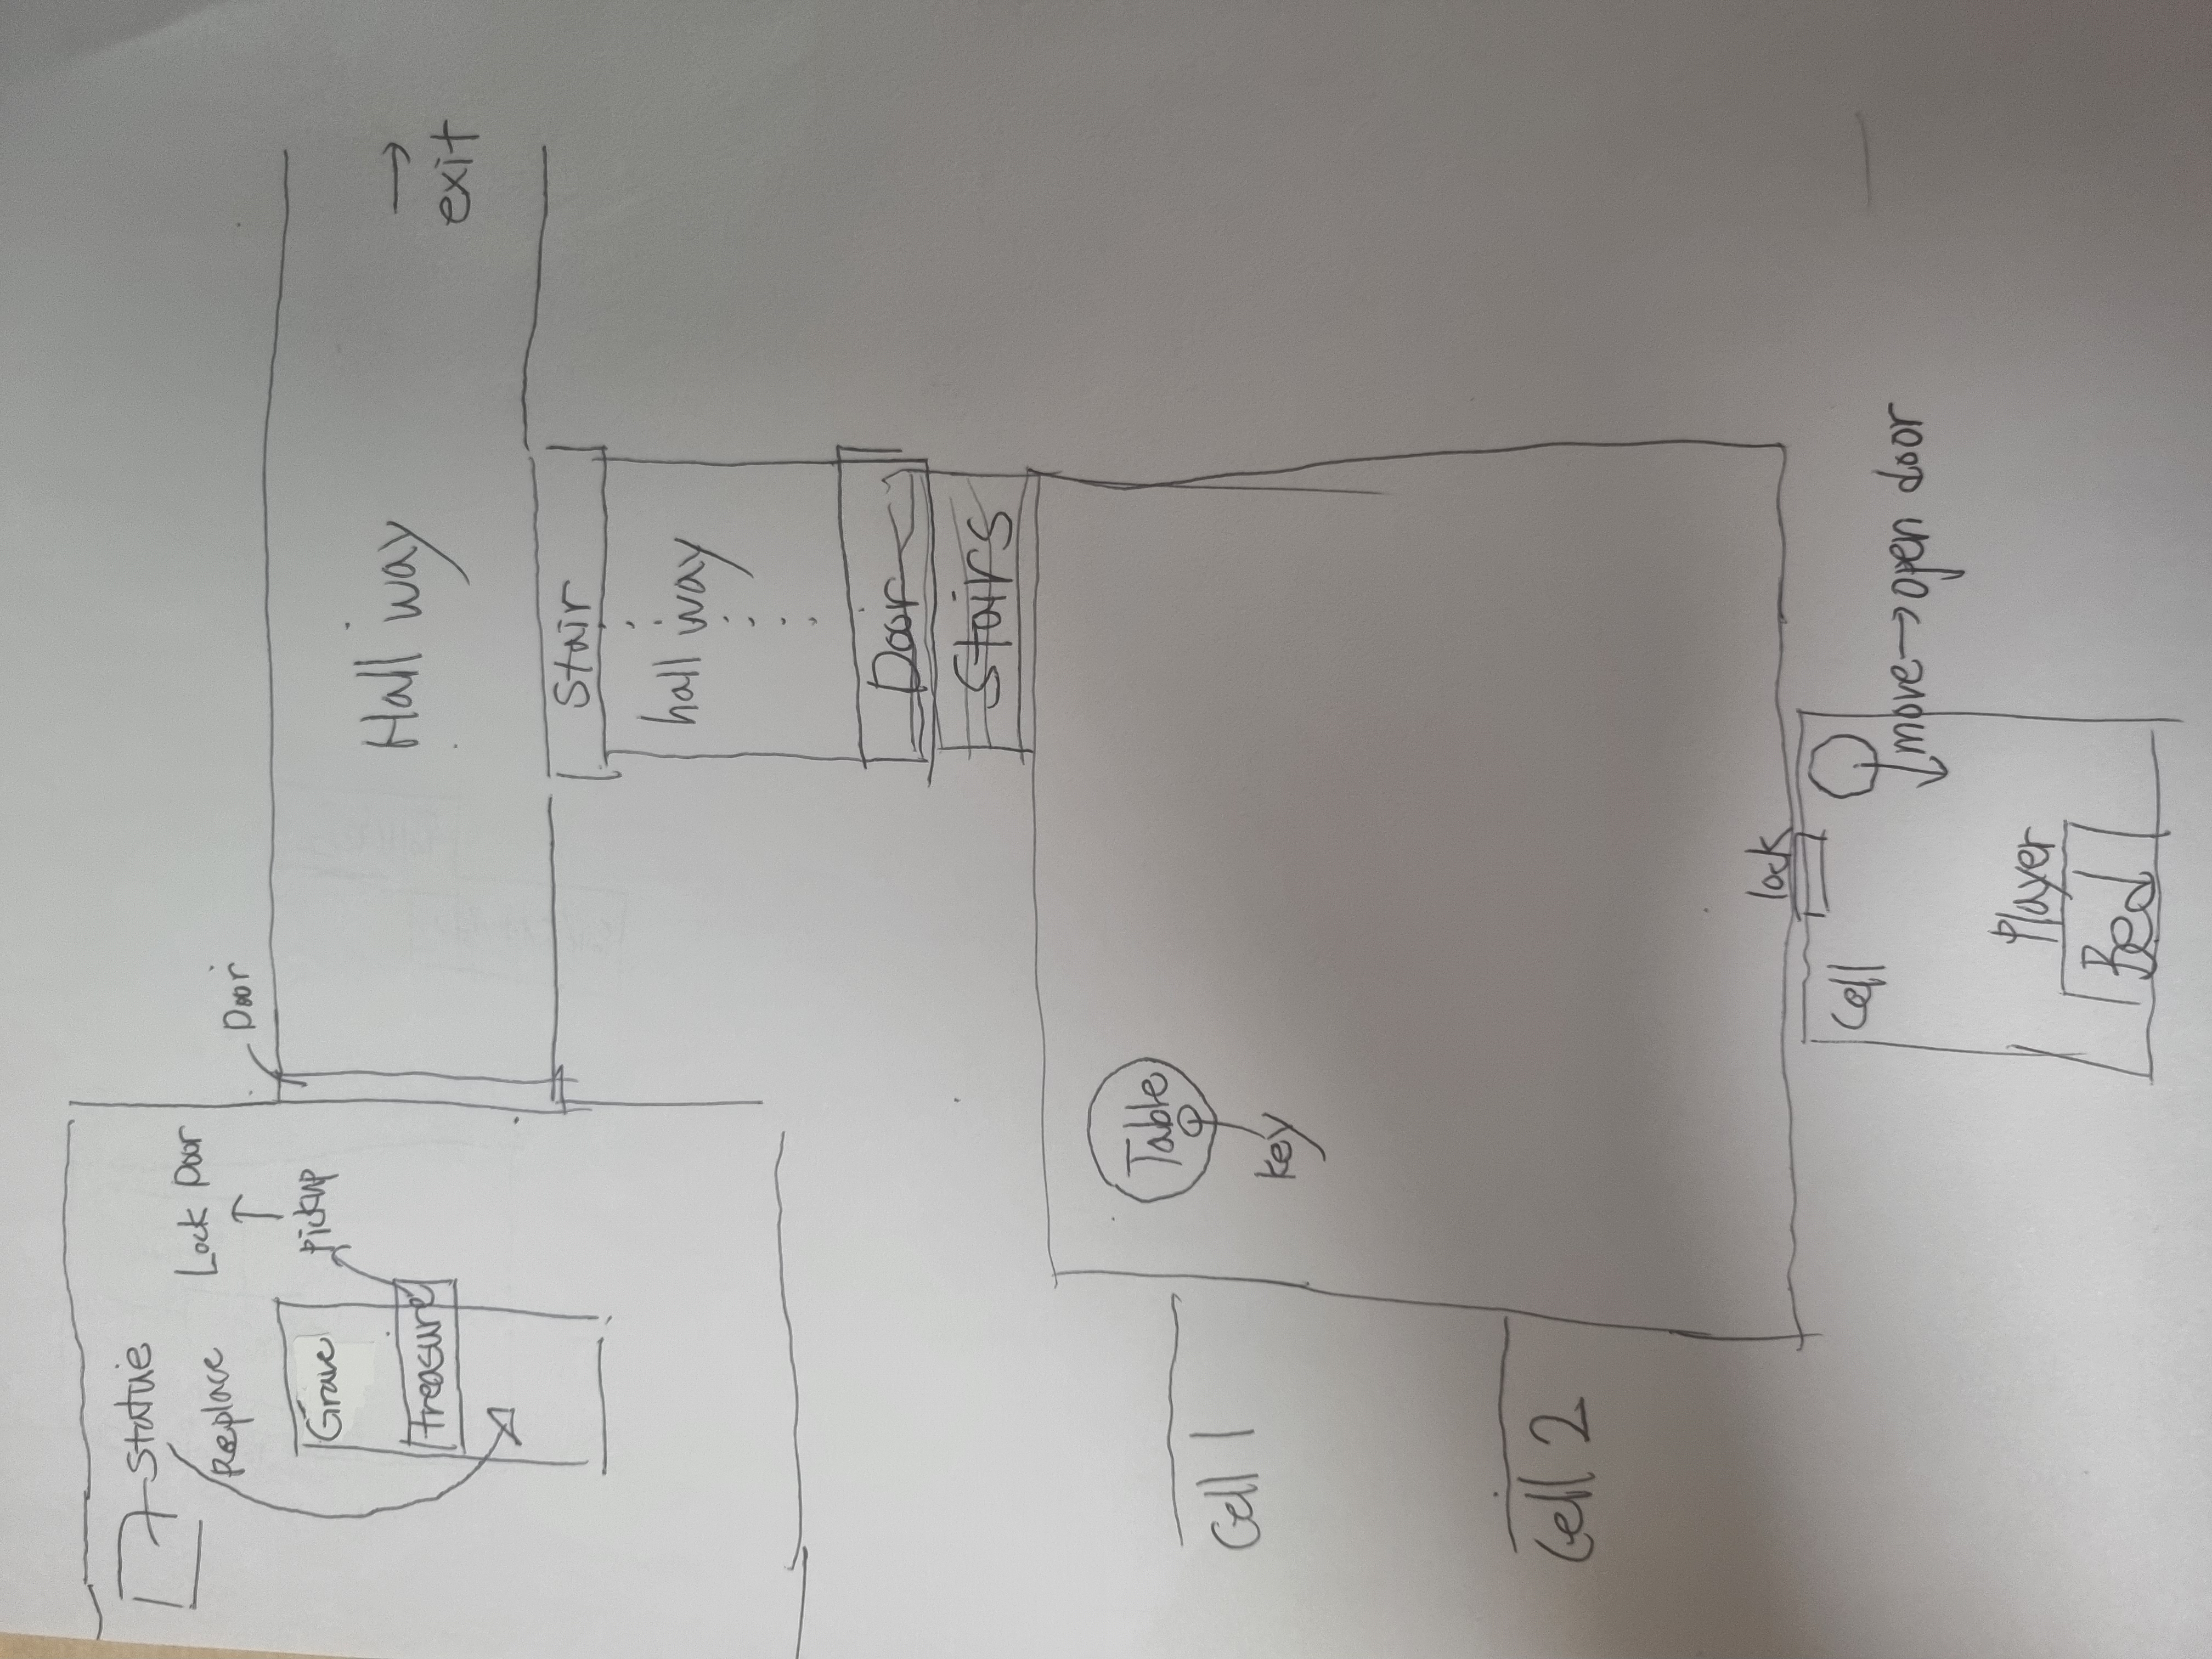 Statue
Replace
Lock Door
Door
Grave
pickup
treasure
Hall way
exit
Stair
hall way
Door
Stairs
Table
key
Cell 1
Cell 2
lock
Cell
move→open door
Player
Bed